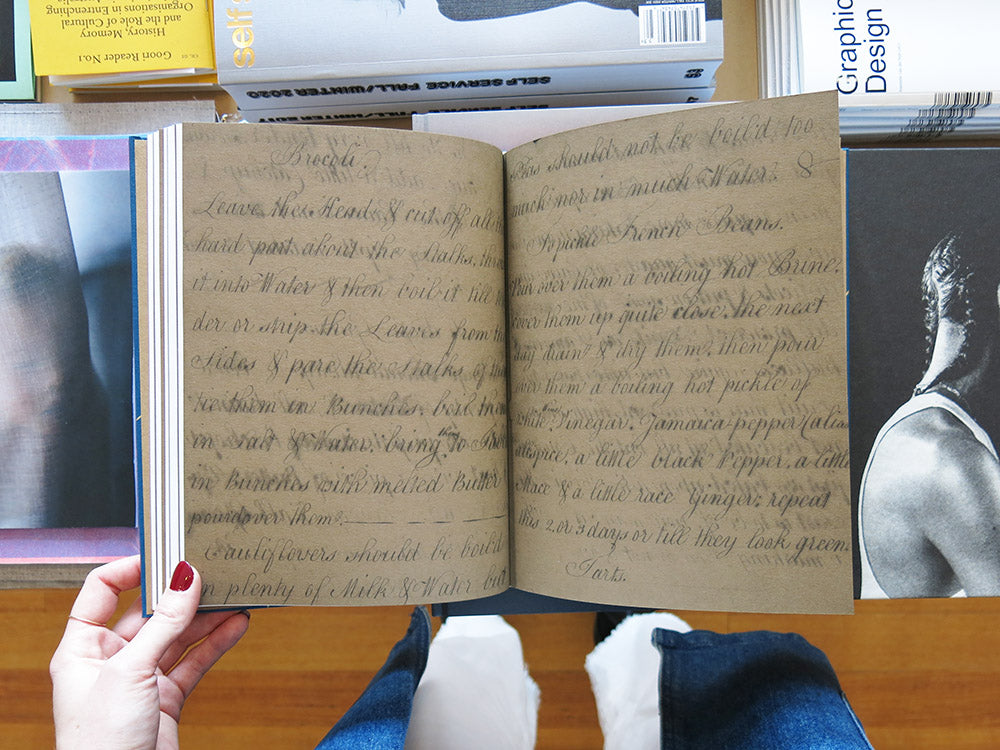 Goori Reader No.1
History, Memory
and the Role of Cultural
Organisations in Entrenching
self
SELF SERVICE FALL/WINTER 2020
Graphic
Design
Brocoli.
Leave the Head & cut off all
hard part about the Stalks,
it into Water & then boil it till
der or strip the Leaves from the
Sides & pare the Stalks of
tie them in Bunches, boil them
in Salt & Water, bring them to
in Bunches with melted Butter
pourd over them.
Cauliflovers should be boild
in plenty of Milk & Water but
Peas should not be boil'd too
much nor in much Water. &
To pickle French Beans.
Pour over them a boiling hot Brine,
cover them up quite close, the next
day drain & dry them, then pour
over them a boiling hot pickle of
white wine Vinegar, Jamaica pepper (alias
allspice, a little black Pepper, a little
Mace & a little race Ginger; repeat
this 2 or 3 days or till they look green.
Tarts.